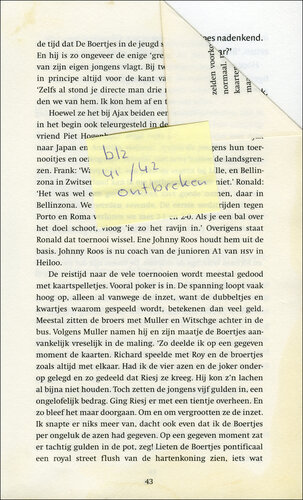 de tijd dat De Boertjes in de jeugd s
es nadenkend.
En hij is zo ongeveer de enige 'gre
er?'
van zijn eigen jongens vlagt. Bij tw
in principe altijd voor de kant va
zelden voorko
'Zelfs al stond je directe man drie m
normaal.
den we van hem. Ik kon hem af en t
kaarten
Hoewel ze het bij Ajax beiden een
in het begin ook teleurgesteld in de
vriend Piet Hogen
naar Japan en
gens hun toer-
nooitjes en oe
de landsgren-
zen. Frank: 'Wa
lle, en Bellin-
zona in Zwitse
niet.' Ronald:
'Het was wel e
dam, bear in
Bellinzona. We
rijden tegen
Porto en Roma
2-0. Als je een bal over
het doel schoot, vloog 'ie zo het ravijn in.' Overigens staat
Ronald dat toernooi wissel. Ene Johnny Roos houdt hem uit de
basis. Johnny Roos is nu coach van de junioren A1 van HSV in
Heiloo.
blz
41 / 42
ontbreken
De reistijd naar de vele toernooien wordt meestal gedood
met kaartspelletjes. Vooral poker is in. De spanning loopt vaak
hoog op, alleen al vanwege de inzet, want de dubbeltjes en
kwartjes waarom gespeeld wordt, betekenen dan veel geld.
Meestal zitten de broers met Muller en Witschge achter in de
bus. Volgens Muller namen hij en zijn maatje de Boertjes aan-
vankelijk vreselijk in de maling. 'Zo deelde ik op een gegeven
moment de kaarten. Richard speelde met Roy en de broertjes
zoals altijd met elkaar. Had ik de vier azen en de joker onder-
op gelegd en zo gedeeld dat Riesj ze kreeg. Hij kon z'n lachen
al bijna niet houden. Toch zetten de jongens vijf gulden in, een
ongelofelijk bedrag. Ging Riesj er met een tientje overheen. En
zo bleef het maar doorgaan. Om en om vergrootten ze de inzet.
Ik snapte er niks meer van, dacht ook even dat ik de Boertjes
per ongeluk de azen had gegeven. Op een gegeven moment zat
er tachtig gulden in de pot, zeg! Lieten de Boertjes pontificaal
een royal street flush van de hartenkoning zien, iets wat
43